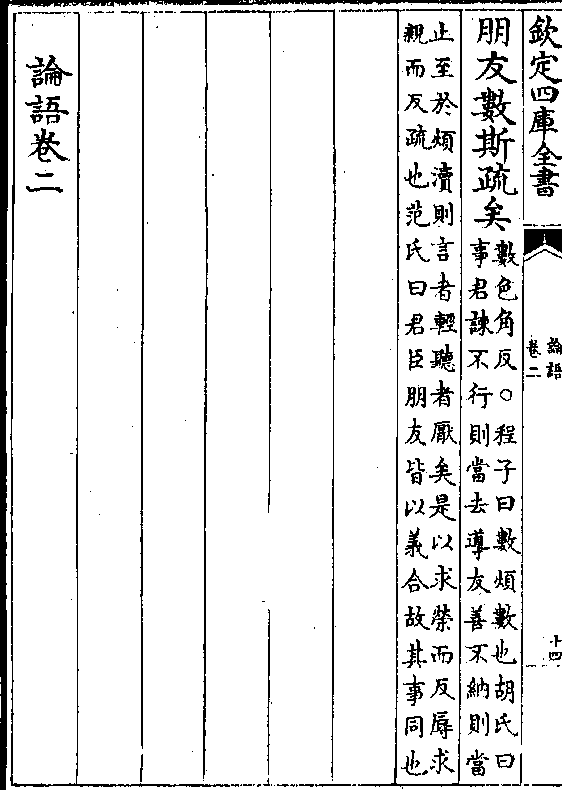 欽定四庫全書
論語
卷二
十四
朋友數斯疏矣
數色角反○程子曰數煩數也胡氏曰
事君諫不行則當去導友善不納則當
止至於煩瀆則言者輕聽者厭矣是以求榮而反辱求
親而反疏也范氏曰君臣朋友皆以義合故其事同也
論語卷二